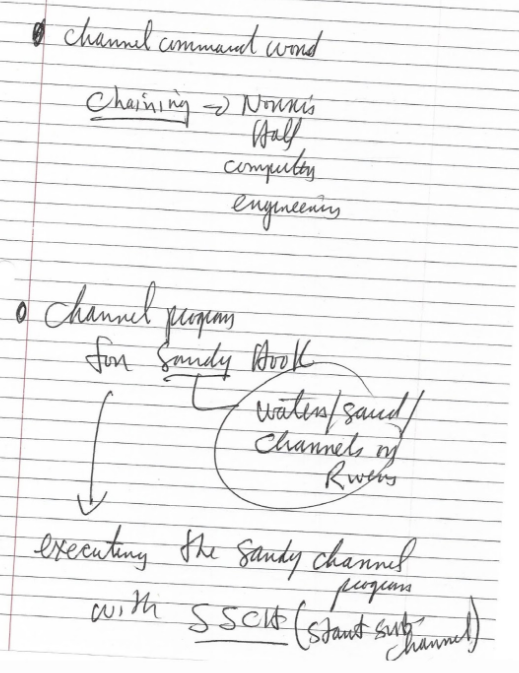 channel command word
Chaining → Norris
Hall
computer
engineering
channel program
for Sandy Hook
waters/sand/
channels of
Rivers
executing the sandy channel
program
with SSCH (start sub-
channel)